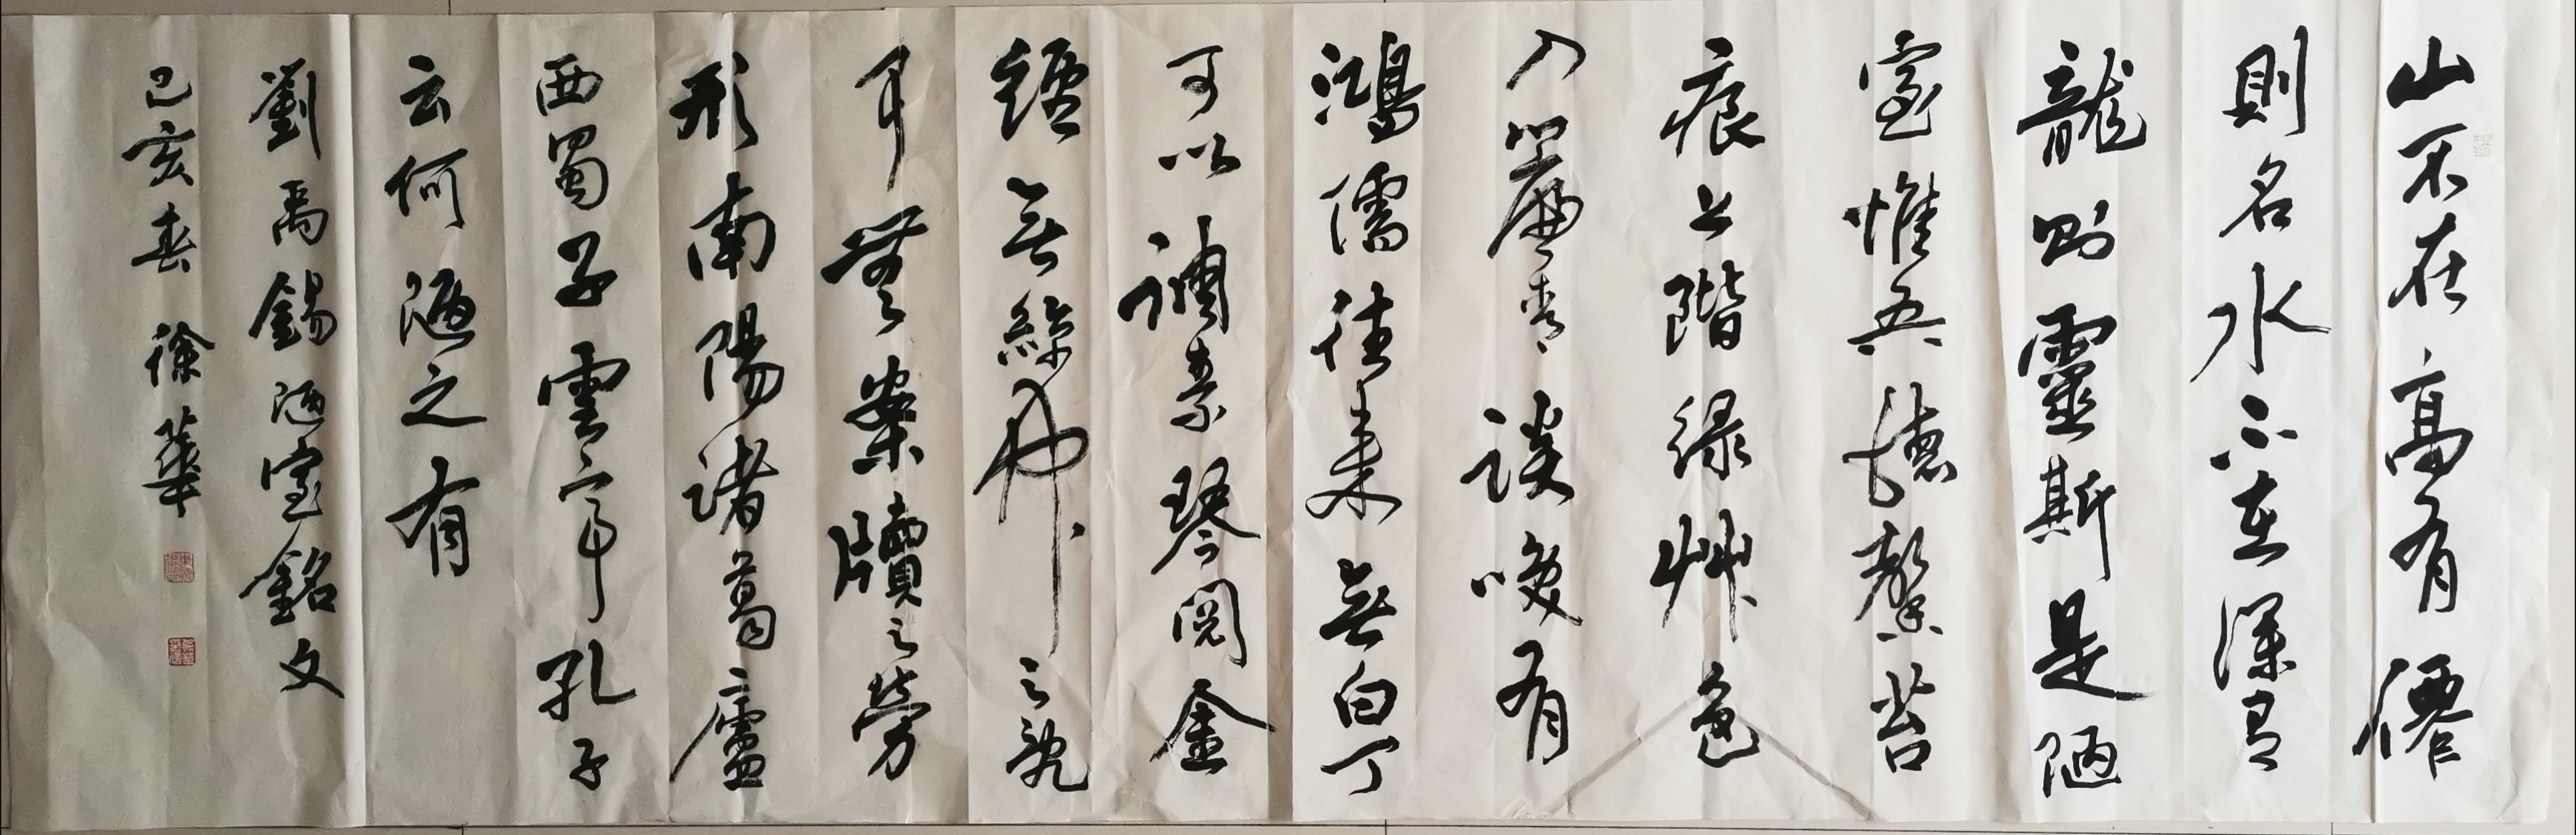 山不在高有僊
則名水不在深有
龍則靈斯是陋
室惟吾德馨苔
痕上階綠艸色
入簾青談咲有
鴻儒往來無白丁
可以調素琴閱金
經無絲竹之亂
耳無案牘之勞
形南陽諸葛廬
西蜀子雲亭孔子
云何陋之有
劉禹錫陋室銘文
己亥春 徐華